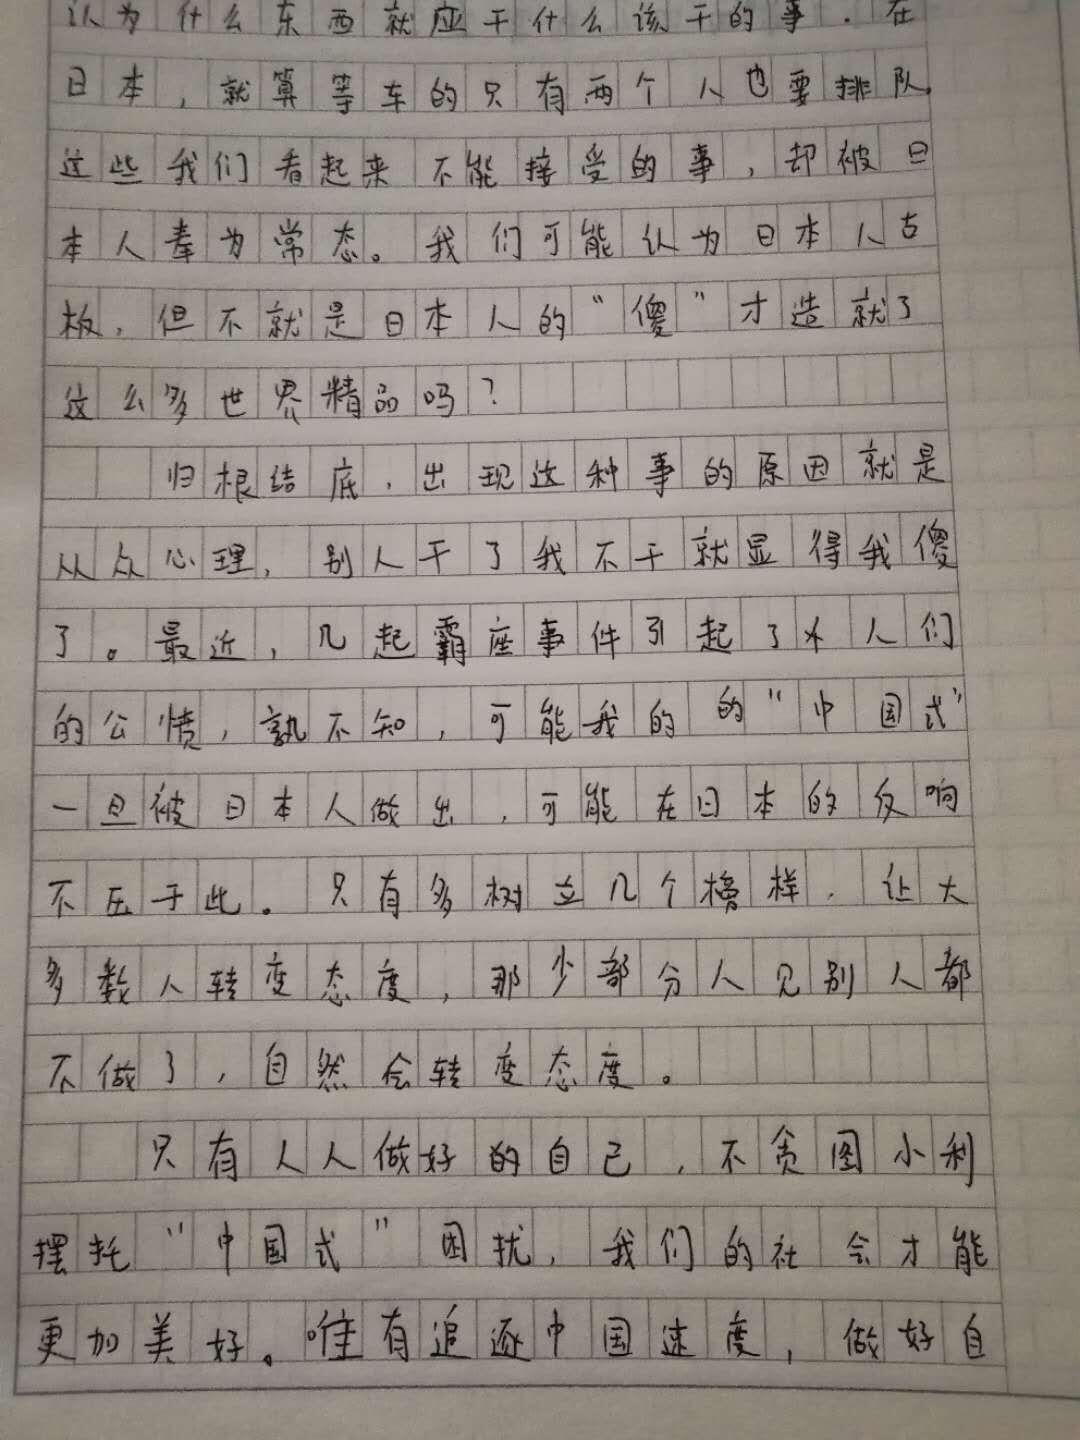 认为什么东西就应干什么该干的事.在
日本,就算等车的只有两个人也要排队,
这些我们看起来不能接受的事,却被日
本人奉为常态。我们可能认为日本人古
板,但不就是日本人的“傻”才造就了
这么多世界精品吗?
归根结底,出现这种事的原因就是
从众心理,别人干了我不干就显得我傻
了。最近,几起霸座事件引起了人们
的公愤,孰不知,可能我的的“中国式”
一旦被日本人做出,可能在日本的反响
不压于此。只有多树立几个榜样,让大
多数人转变态度,那少部分人见别人都
不做了,自然会转变态度。
只有人人做好的自己,不贪图小利
摆托“中国式”困扰,我们的社会才能
更加美好。唯有追逐中国速度,做好自